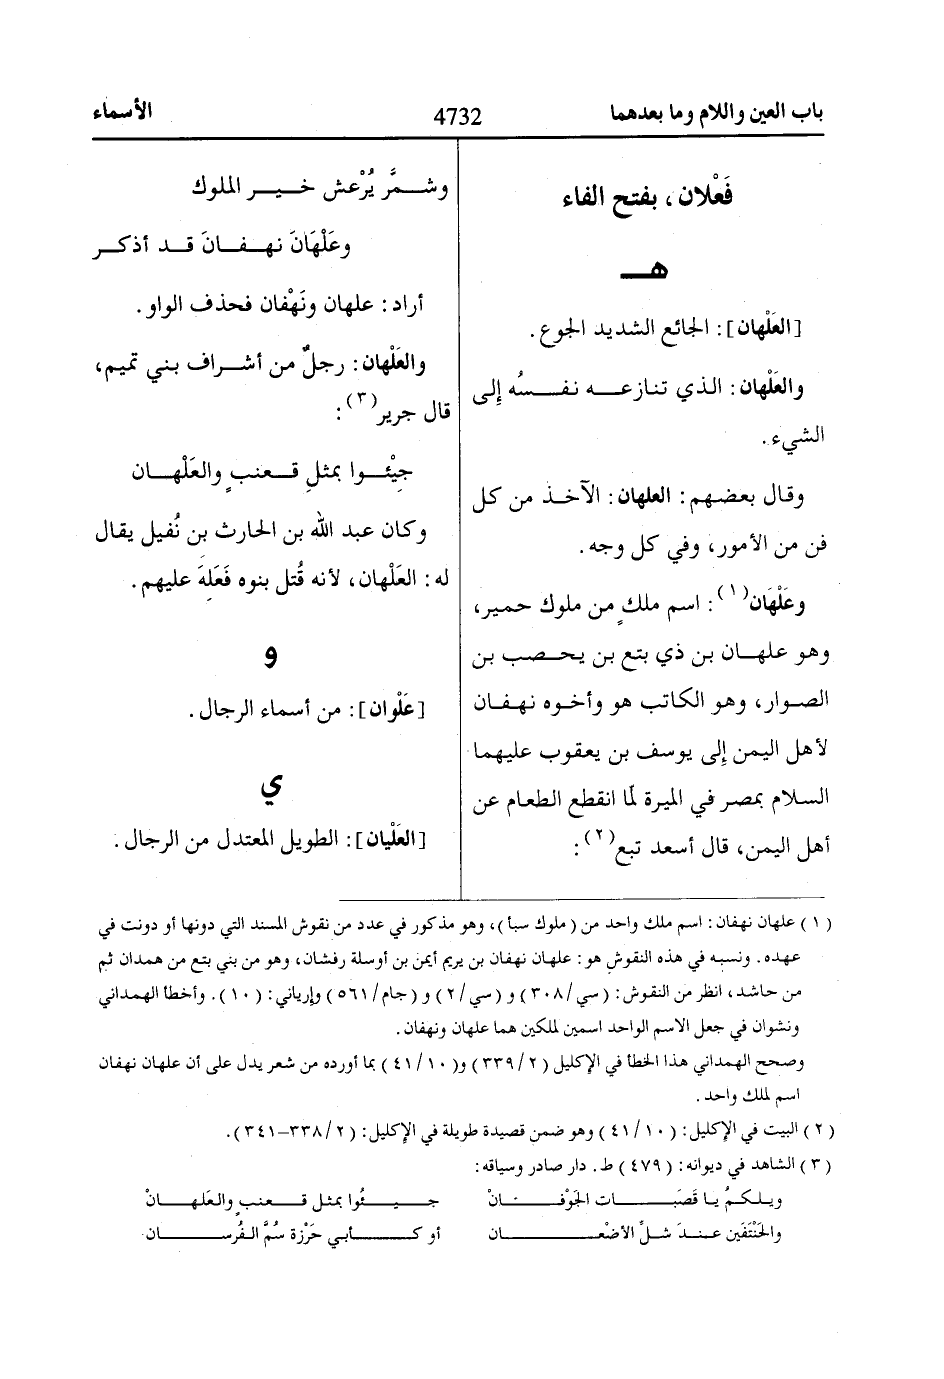 باب العين واللام وما بعدهما 4732 الأسماء
فَعْلان، بفتح الفاء
هـ
[العَلْهان]: الجائع الشديد الجوع.
والعَلْهان: الذي تنازعه نفسُه إلى
الشيء.
وقال بعضهم: العلهان: الآخذ من كل
فن من الأمور، وفي كل وجه.
وعَلْهَان(١): اسم ملكٍ من ملوك حمير،
وهو علهان بن ذي بتع بن يحصب بن
الصوار، وهو الكاتب هو وأخوه نهفان
لأهل اليمن إلى يوسف بن يعقوب عليهما
السلام بمصر في الميرة لمّا انقطع الطعام عن
أهل اليمن، قال أسعد تبع(٢):
وشمَّر يُرْعش خير الملوك
وعَلْهَانَ نهفانَ قد أذكر
أراد: علهان ونَهْفان فحذف الواو.
والعَلْهان: رجلٌ من أشراف بني تميم،
قال جرير(٣):
جِيْئوا بمثلِ قعنبٍ والعَلْهان
وكان عبد الله بن الحارث بن نُفيل يقال
له: العَلْهان، لأنه قُتل بنوه فَعَلِهَ عليهم.
و
[عَلْوان]: من أسماء الرجال.
ي
[العَلْيان]: الطويل المعتدل من الرجال.
(١) علهان نهفان: اسم ملك واحد من (ملوك سبأ)، وهو مذكور في عدد من نقوش المسند التي دونها أو دونت في
عهده. ونسبه في هذه النقوش هو: علهان نهفان بن يريم أيمن بن أوسلة رفشان، وهو من بني بتع من همدان ثم
من حاشد، انظر من النقوش: (سي/٣٠٨) و (سي/٢) و (جام/٥٦١) وإرياني: (١٠). وأخطأ الهمداني
ونشوان في جعل الاسم الواحد اسمين لملكين هما علهان ونهفان.
وصحح الهمداني هذا الخطأ في الإكليل (٣٣٩/٢) و(٤١/١٠) بما أورده من شعر يدل على أن علهان نهفان
اسم لملك واحد.
(٢) البيت في الإكليل: (٤١/١٠) وهو ضمن قصيدة طويلة في الإكليل: (٣٣٨/٢–٣٤١).
(٣) الشاهد في ديوانه: (٤٧٩) ط. دار صادر وسياقه:
ويلكمُ يا قَصَبَات الجَوْفَانْ جيئُوا بمثل قعنبٍ والعَلهانْ
والحَنْتَفَين عندَ شلِّ الأضْعان أو كأبي حَرْزة سُمَّ الفُرسان